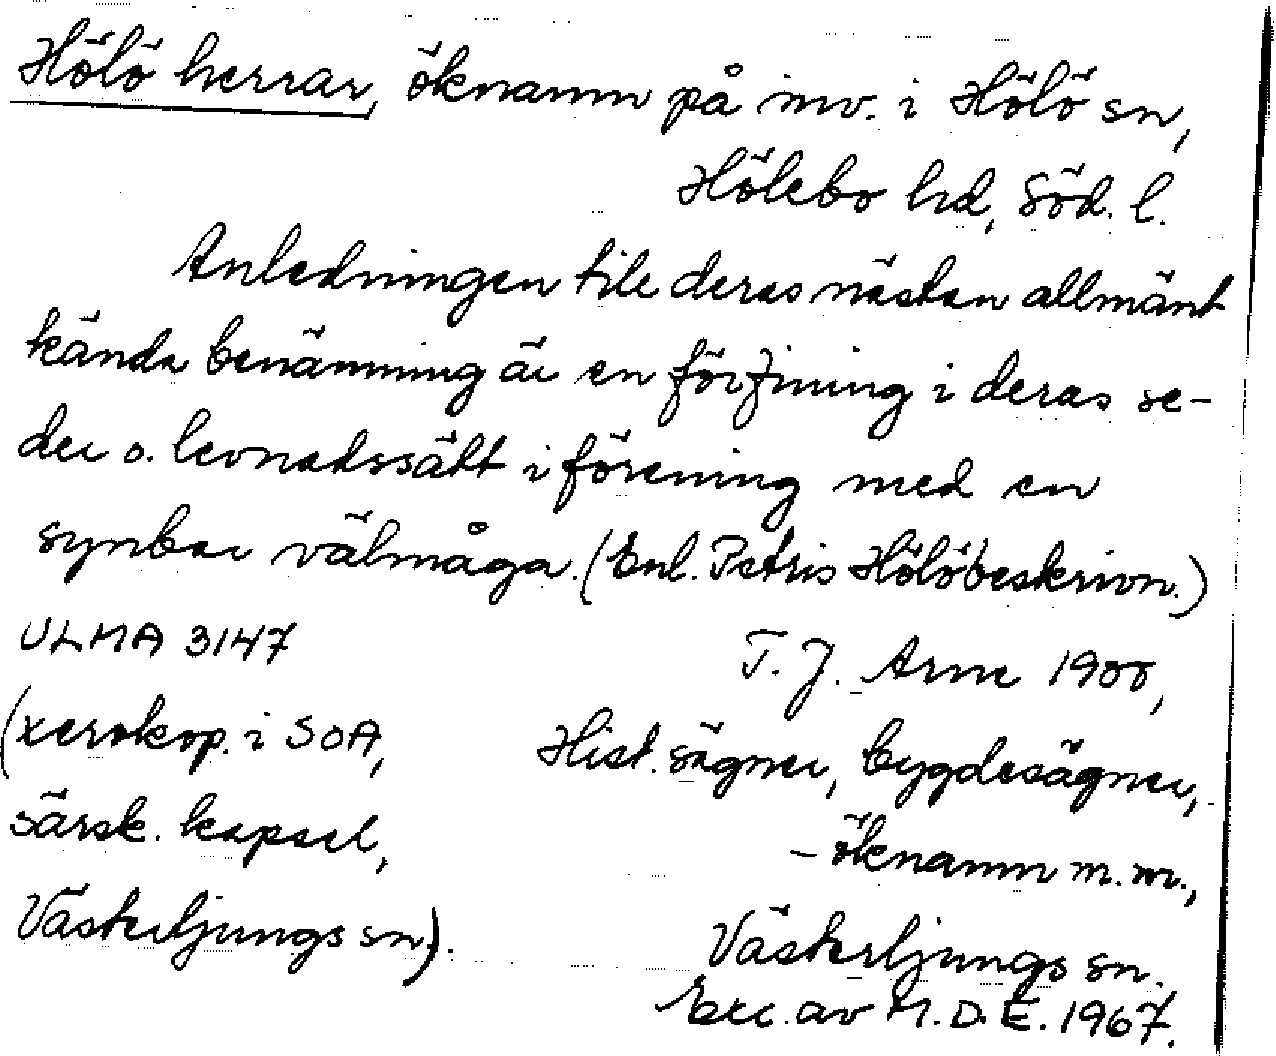 Hölö herrar, öknamn på inv. i Hölö sn,
Hölebo hd, Söd. l.
Anledningen till deras nästan allmänt
kända benämning är en förfining i deras se-
der o. levnadssätt i förening med en
synbar välmåga. (Enl. Petris Hölöbeskrivn.)
ULMA 3147
T. J. Arne 1900,
(xerokop. i SOA,
Hist. sägner, bygdesägner,
särsk. kapsel,
- öknamn m. m.,
Västerljungs sn).
Västerljungs sn.
Exc. av M.D.E. 1967.